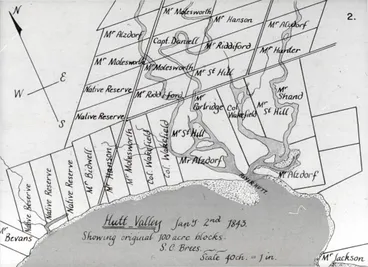 2.
N
E
W
S
Mr Molesworth
Mr Hanson
Mr Alzdorf
Mr Alzdorf
Capt. Daniell
Mr Riddiford
Mr Hunter
Mr Molesworth
Molesworth
Mr St Hill
Mr Shand
Native Reserve
Mr Riddiford
Mr Partridge
Col. Wakefield
Mr St Hill
Native Reserve
Mr St Hill
Native Reserve
Native Reserve
Native Reserve
Mr Bidwell
Mr Hanson
Mr Molesworth
Col. Wakefield
Col. Wakefield
Mr Alzdorf
Mr Alzdorf
Mr Bevans
Hutt Valley Jany 2nd 1843.
Showing original 100 acre blocks.
S. C. Brees.
Scale 40ch. = 1 in.
Mr Jackson